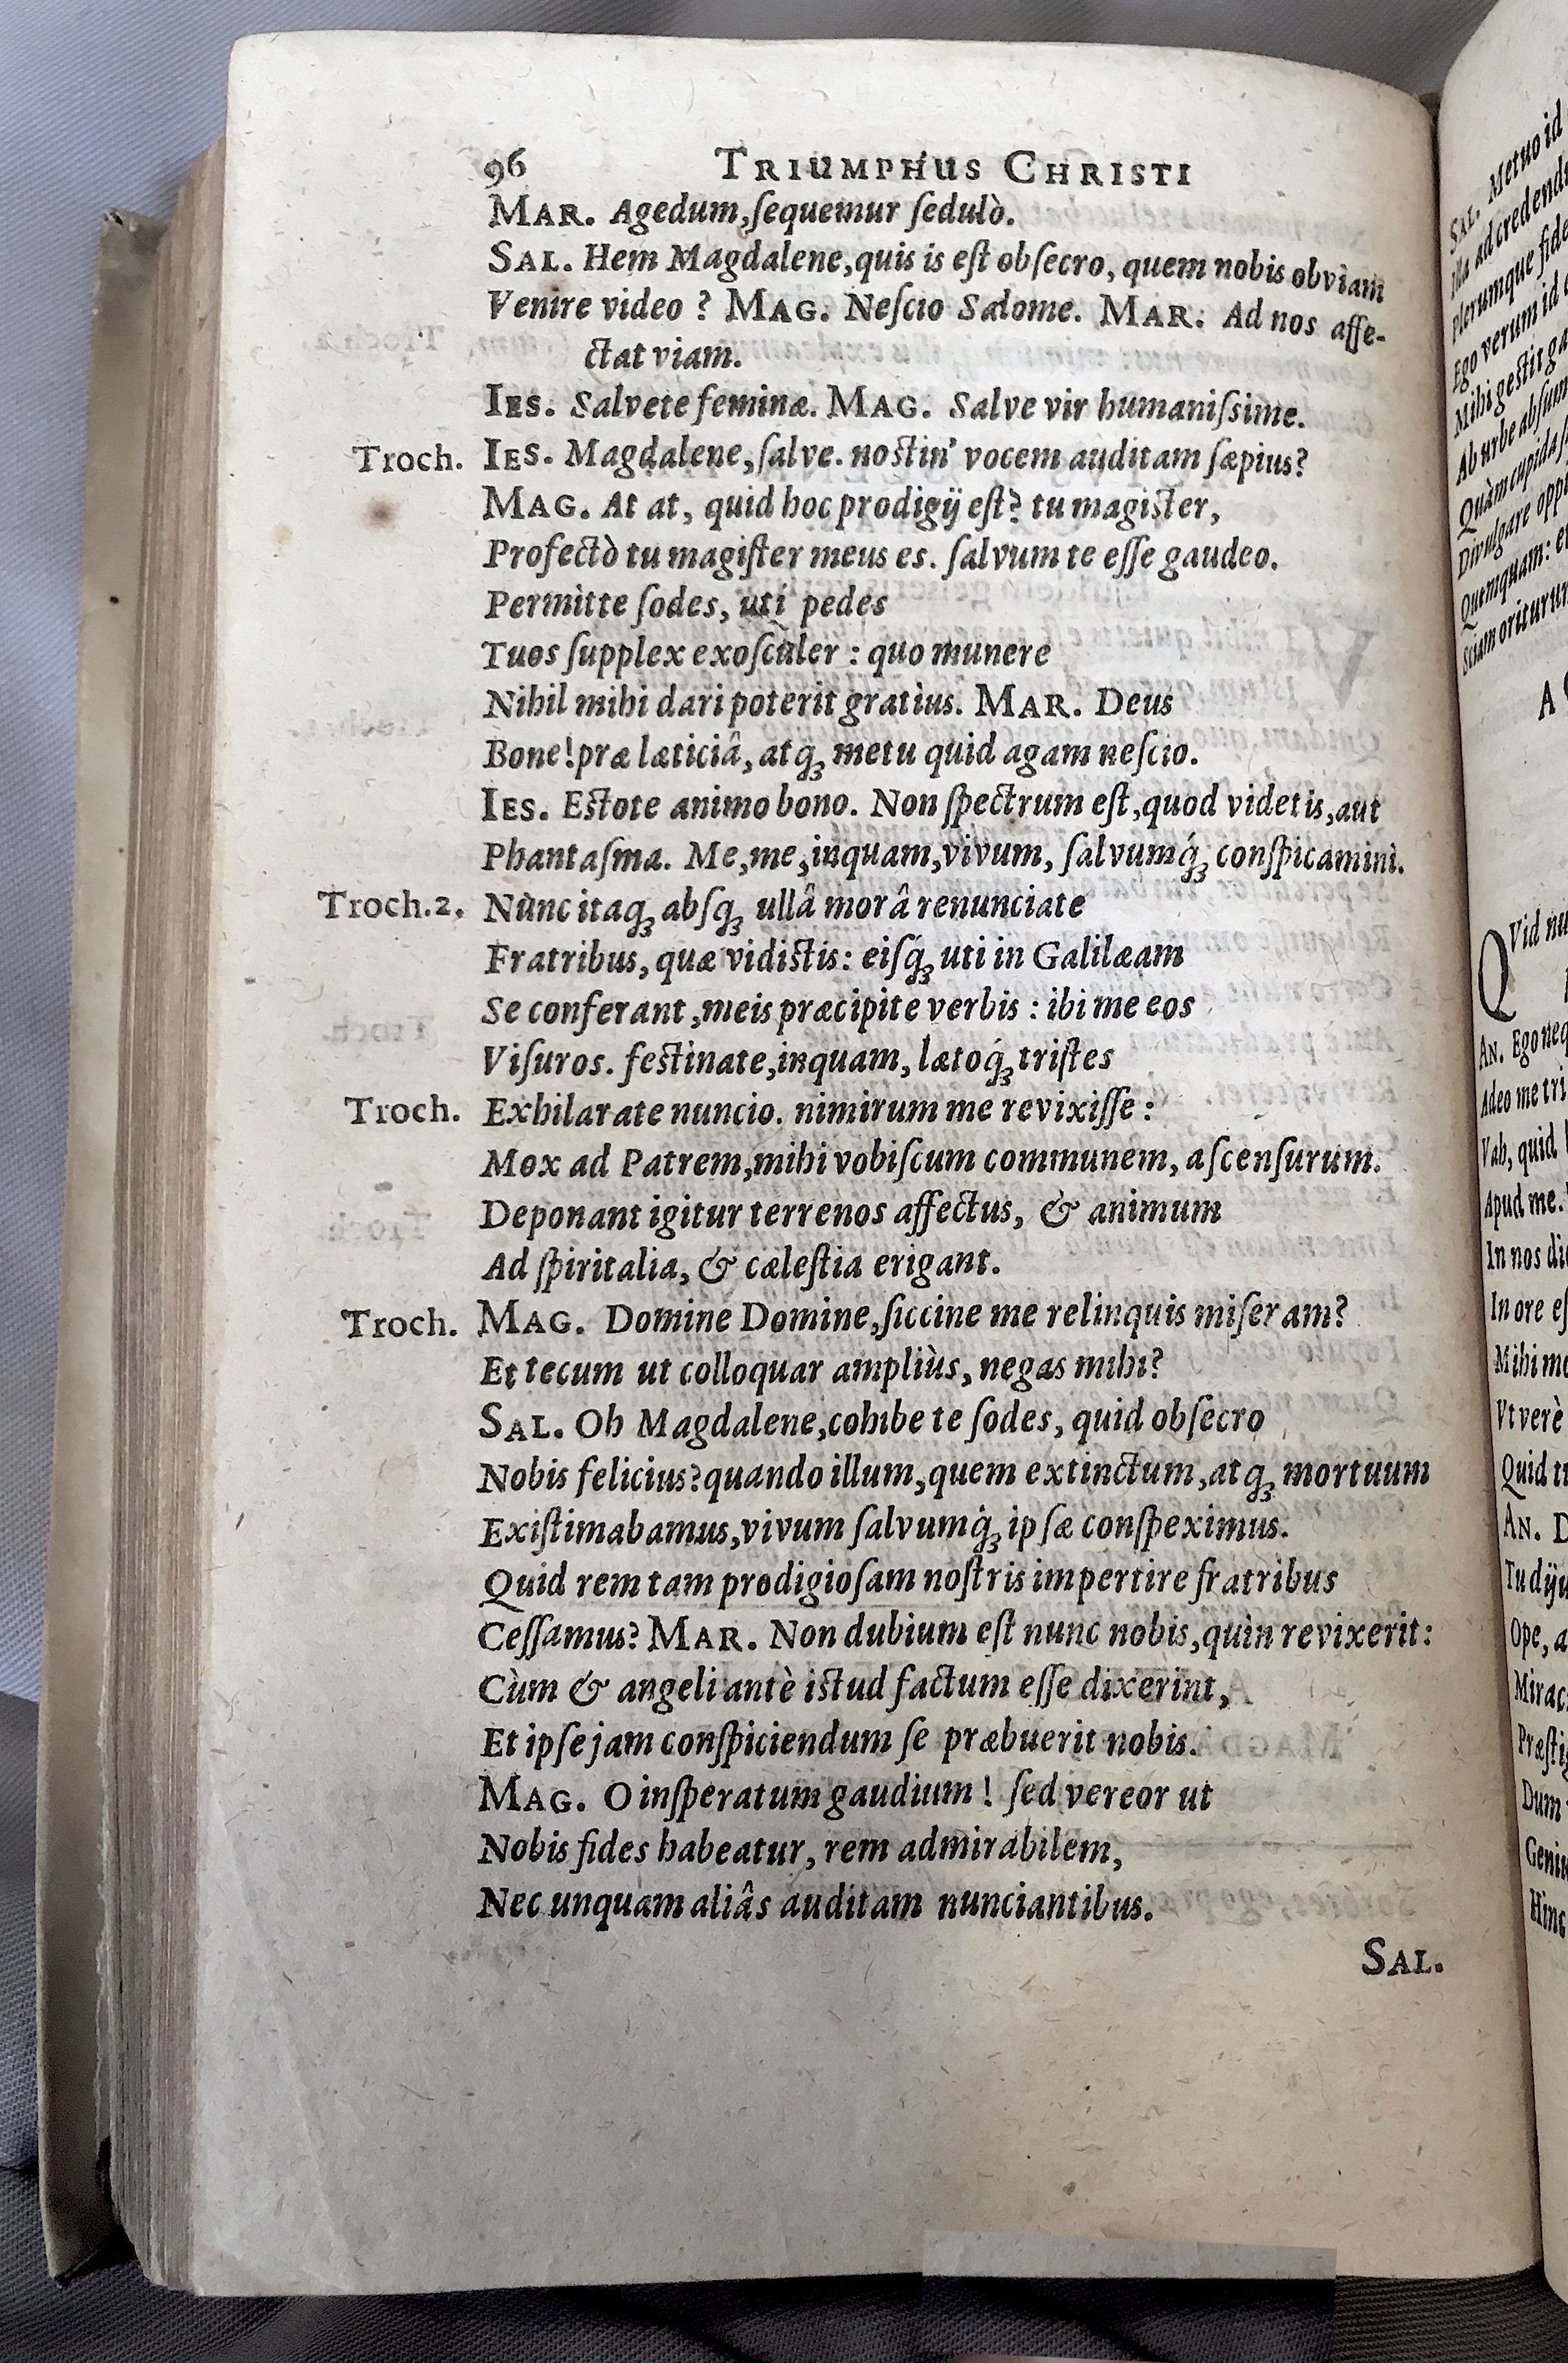 96 TRIUMPHUS CHRISTI
MAR. Agedum, ſequemur ſedulò.
SAL. Hem Magdalene, quis is eſt obſecro, quem nobis obviam
Venire video ? MAG. Neſcio Salome. MAR. Ad nos affe-
ctat viam.
IES. Salvete feminæ. MAG. Salve vir humaniſsime.
Troch. IES. Magdalene, ſalve. noſtin' vocem auditam ſæpius?
MAG. At at, quid hoc prodigij eſt? tu magiſter,
Profectò tu magiſter meus es. ſalvum te eſſe gaudeo.
Permitte ſodes, uti pedes
Tuos ſupplex exoſculer : quo munere
Nihil mihi dari poterit gratius. MAR. Deus
Bone! præ læticiâ, atqꝫ metu quid agam neſcio.
IES. Eſtote animo bono. Non ſpectrum eſt, quod videtis, aut
Phantaſma. Me, me, inquam, vivum, ſalvumq́ꝫ conſpicamini.
Troch.2. Nùnc itaqꝫ abſqꝫ ullâ morâ renunciate
Fratribus, quæ vidiſtis: eiſq́ꝫ uti in Galilæam
Se conferant, meis præcipite verbis : ibi me eos
Viſuros. feſtinate, inquam, lætoq́ꝫ triſtes
Troch. Exhilarate nuncio. nimirum me revixiſſe :
Mox ad Patrem, mihi vobiſcum communem, aſcenſurum.
Deponant igitur terrenos affectus, & animum
Ad ſpiritalia, & cæleſtia erigant.
Troch. MAG. Domine Domine, ſiccine me relinquis miſeram?
Et tecum ut colloquar ampliùs, negas mihi?
SAL. Oh Magdalene, cohibe te ſodes, quid obſecro
Nobis felicius? quando illum, quem extinctum, atqꝫ mortuum
Exiſtimabamus, vivum ſalvumq́ꝫ ipſæ conſpeximus.
Quid rem tam prodigioſam noſtris impertire fratribus
Ceſſamus? MAR. Non dubium eſt nunc nobis, quin revixerit:
Cùm & angeli antè iſtud factum eſſe dixerint,
Et ipſe jam conſpiciendum ſe præbuerit nobis.
MAG. O inſperatum gaudium ! ſed vereor ut
Nobis fides habeatur, rem admirabilem,
Nec unquam aliâs auditam nunciantibus.
SAL.
SAL. Metuo id
ad credend
plerumque fide
Ego verum id
Mihi geſtit ga
Ab urbe abſum
Quàm cupida
Divulgare opp
Quemquam: e
oriturum
A
QVid nu
AN. Ego neq
Adeo me tri
Vah, quid
Apud me.
In nos di
In ore eſ
Mihi me
Vt verè
Quid t
AN. D
Tu dij
Ope, a
Mirac
Præſti
Dum
Geni
Hinc